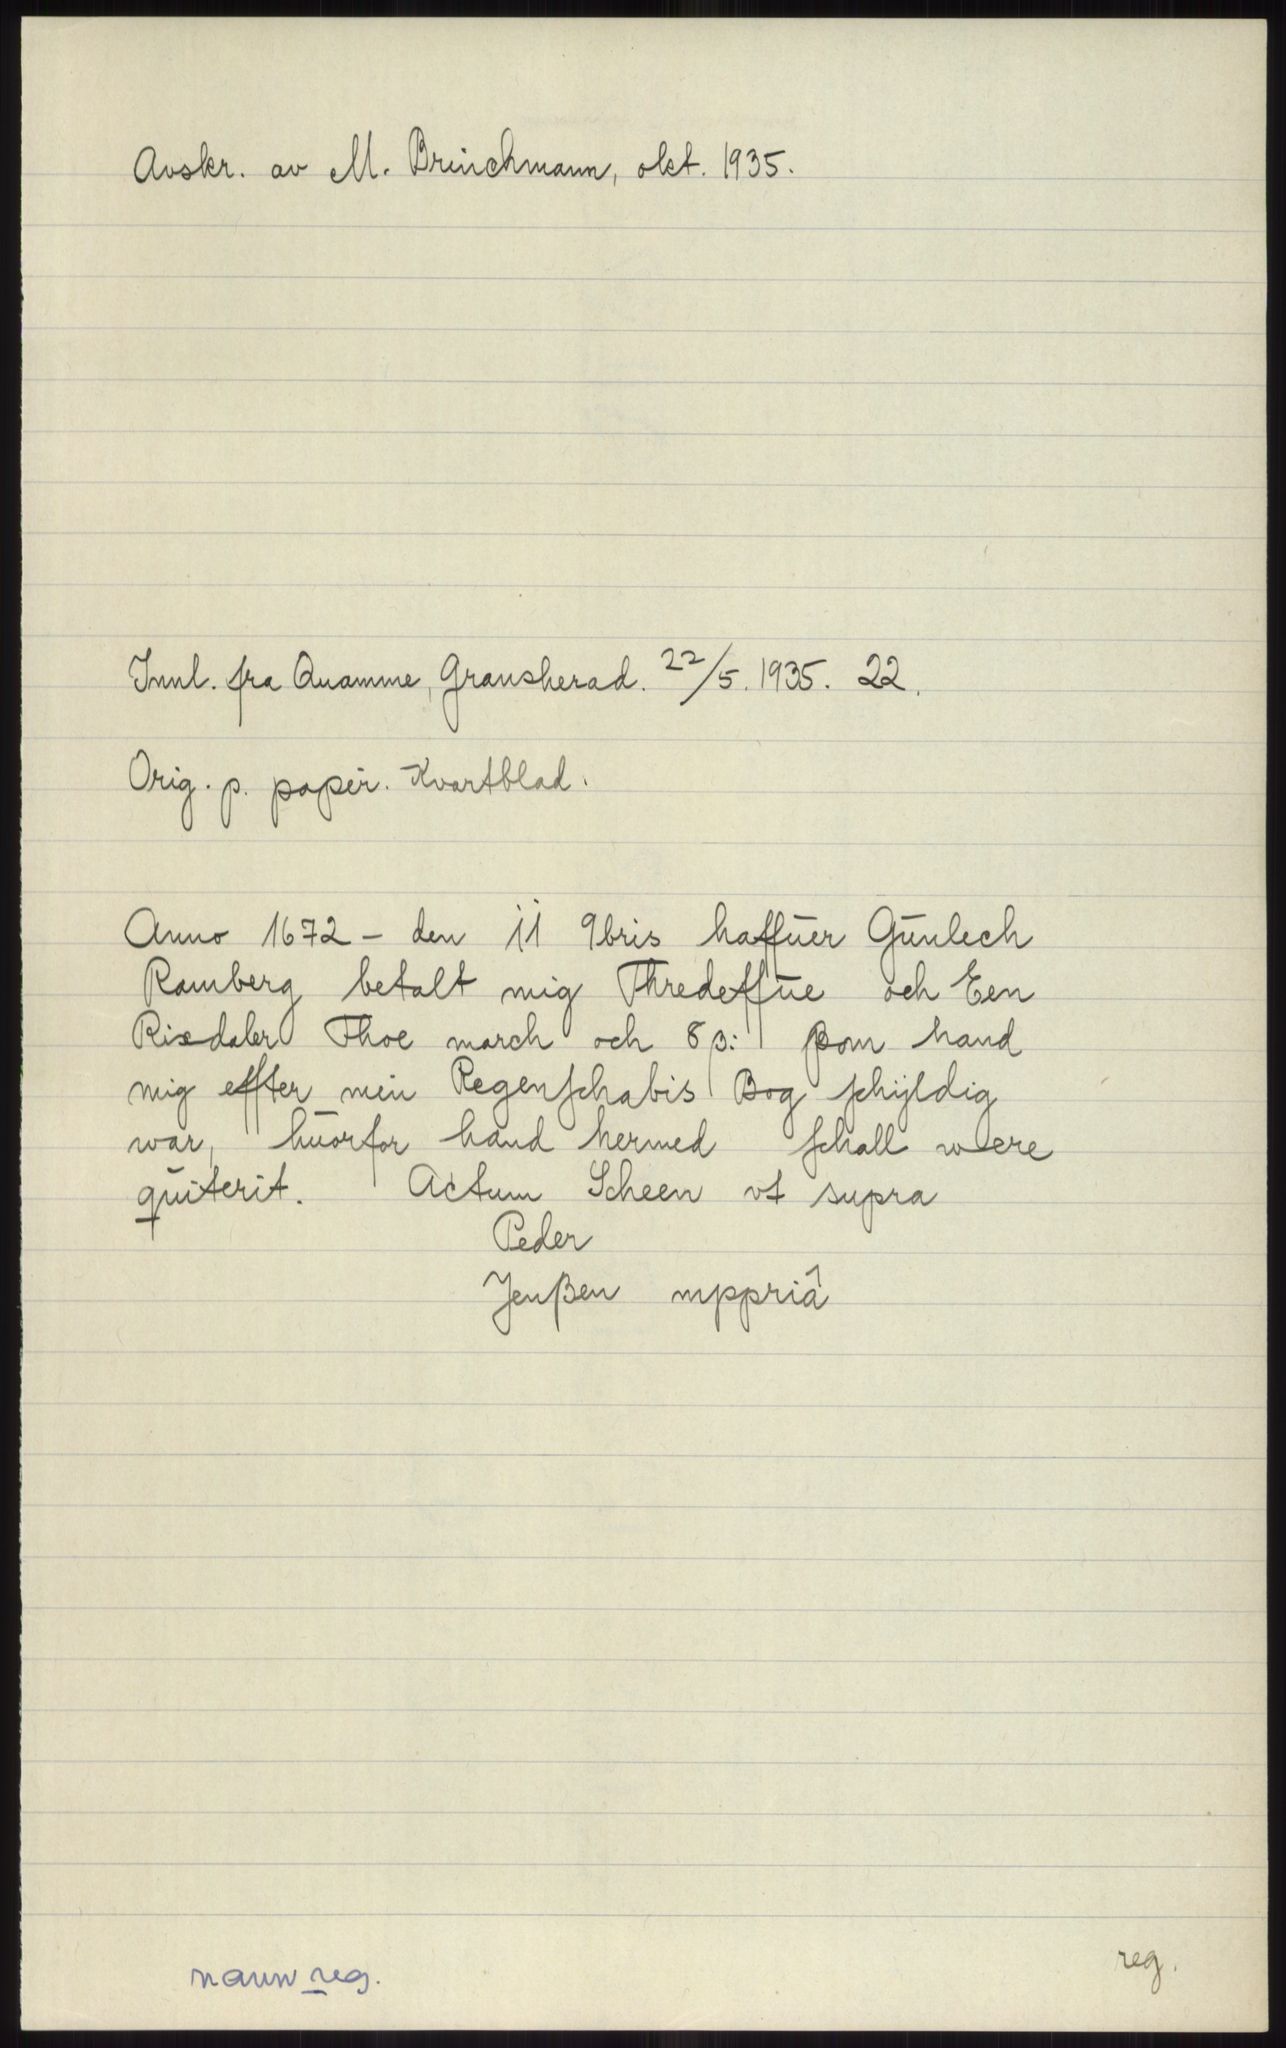 Avskr. av M. Brinchmann, okt. 1935.
Innl. fra Quamme, Gransherad. 22/5. 1935. 22.
Orig. p. papir. Kvartblad.
Anno 1672 – den ii 9bris haffuer Gunlech
Ramberg betalt mig Thredeffue och Een
Rixdaler Thoe march och 8 β: ßom hand
mig effter min Regenschabis Bog schyldig
war, huorfor hand hermed schall were
quiterit. Actum Scheen vt supra
Peder
Jenßen mppriâ
navnreg.
reg.